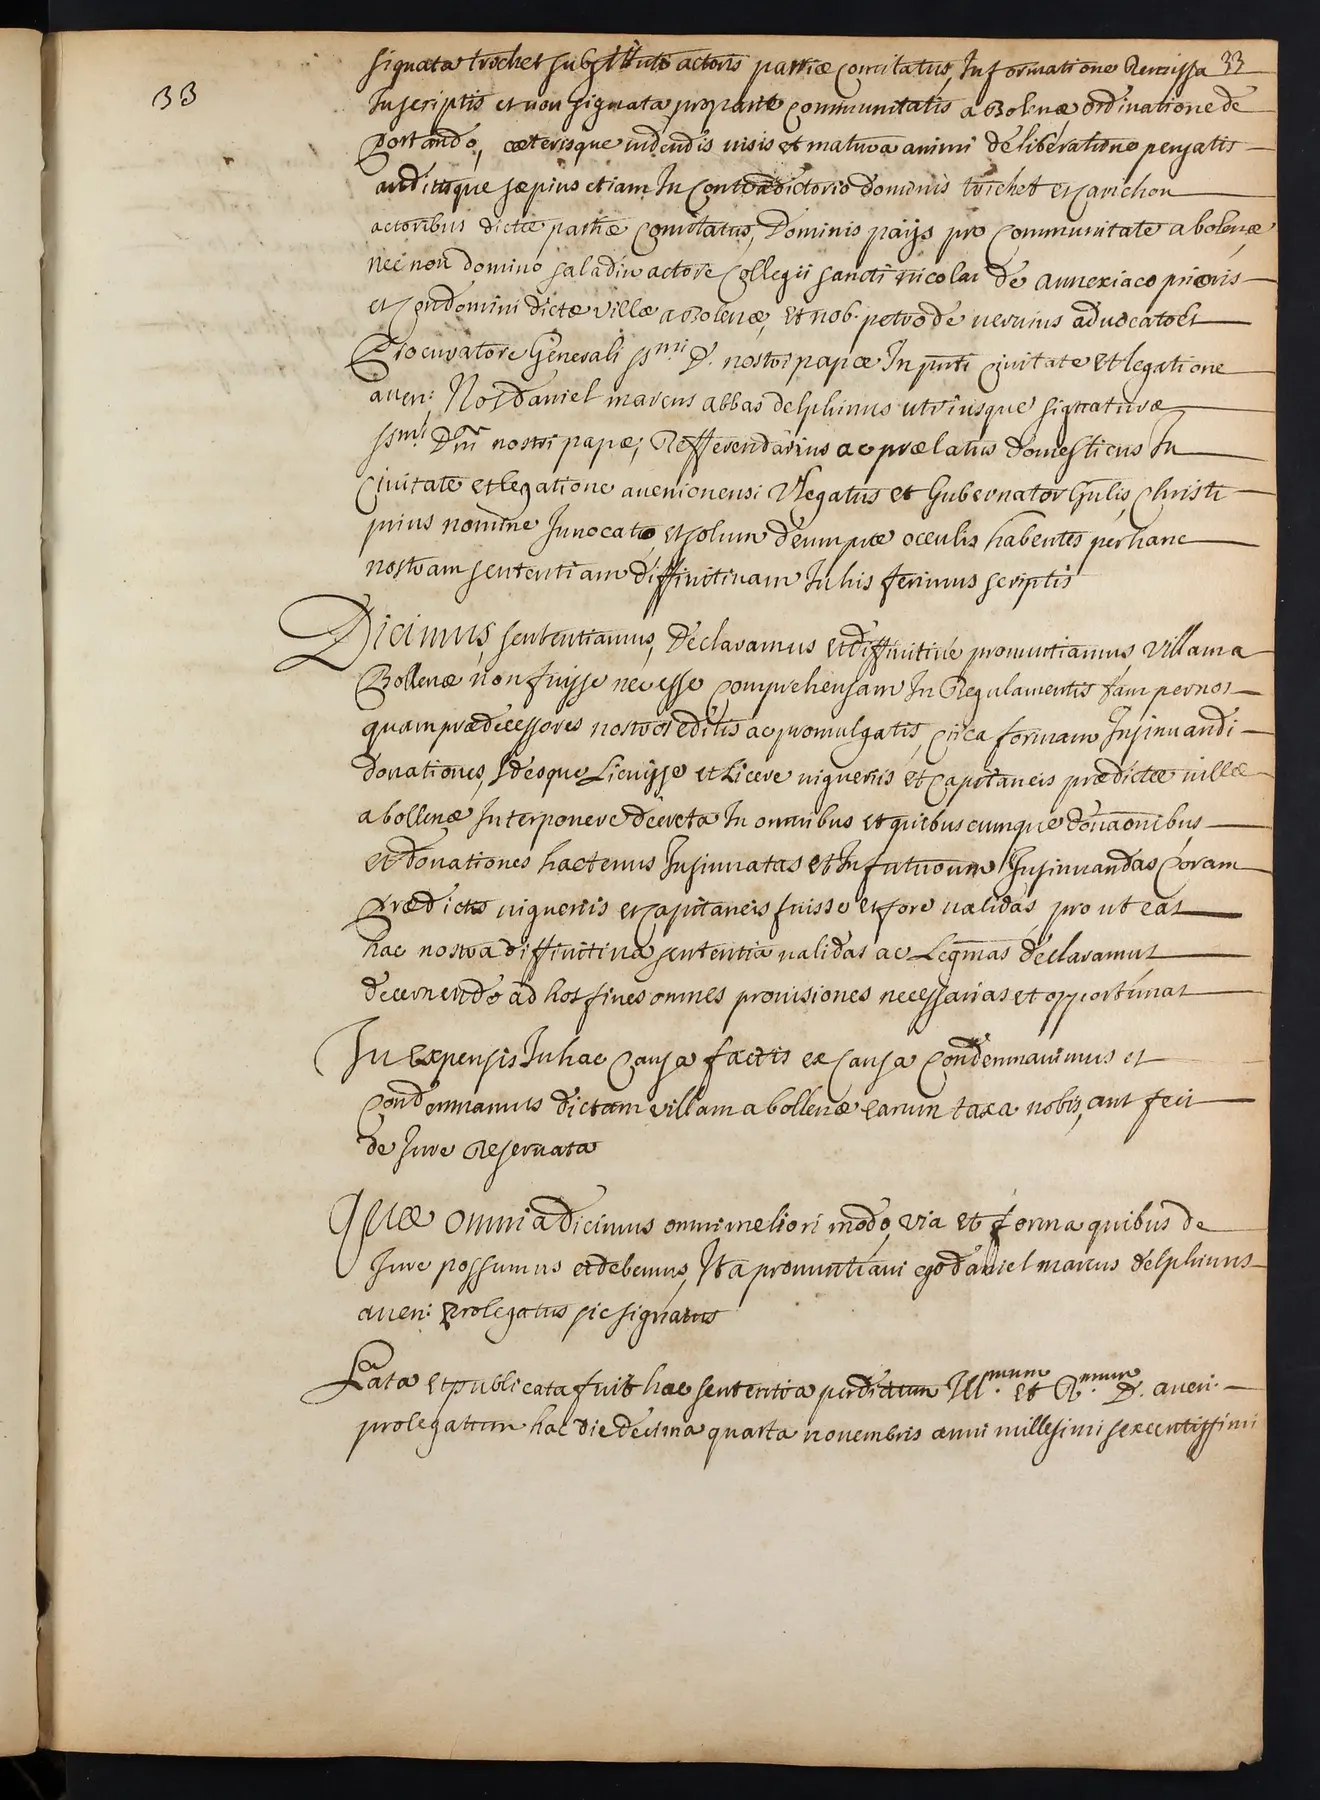 33
signata trichet substituto actoris patriæ comitatus, Informatione Remissa 33
Inscriptis et non signata pro parte communitatis a Bolenæ ordinatione de
portando, cæterisque uidendis uisis et matura animi deliberatione pensatis
auditisque sæpius etiam In Contradictorio dominis trichet et carichon
actoribus dictæ patriæ Comitatus, Dominis paijs pro Communitate a bolenæ
nec non domino saladin actore Collegii sancti nicolai de annexiaco prioris
et Condomini dictæ villæ a Bolenæ, et nob. petro de ueruins aduocato et
Procuratore Generali ss.mi D. nostri papæ In pnti Ciuitate et legatione
auen: Nos Daniel marcus abbas delphinus utriusque signaturæ
ssmi Dni nostri papæ, Refferendarius ac prælatus domesticus In
Ciuitate et legatione auenionensi Vlegatus et Gubernator Gnlis, Christi
prius nomine Inuocato, et solum deum præ occulis habentes per hanc
nostram sententiam diffinitiuam In his ferimus scriptis
Dicimus, sententiamus, declaramus et diffinitiue pronuntiamus, villam a
Bollenæ non fuisse nec esse Comprehensam In Regulamentis tam per nos
quam prædecessores nostros editis ac promulgatis, circa formam Insinuandi
donationes, Ideoque Licuisse et Licere uigueriis et Capitaneis prædictæ uillæ
a bollenæ Interponere decreta In omnibus et quibuscumque donaonibus
et donationes hactenus Insinuatas et In futurum Insinuandas Coram
prædictis uigueriis et Capitaneis fuisse et fore ualidas, prout eas
hac nostra diffinitiua sententia ualidas ac Legmas declaramus
decernendo ad hos fines omnes prouisiones necessarias et opportunas
In Expensis In hac Causa factis ex Causa Condemnauimus et
Condemnamus dictam villam a bollenæ earum taxa nobis, aut feci
de Iure Reseruata
Quæ omnia dicimus omni meliori modo, via et forma quibus de
Iure possumus et debemus, Ita pronuntiaui ego daniel marcus delphinus
auen: Prolegatus sic signatus
Lata et publicata fuit hæc sententia per dictum Ill.mum et R.mum D. auen:
prolegatum hac die decima quarta nouembris anni millesimi sexcentissimi